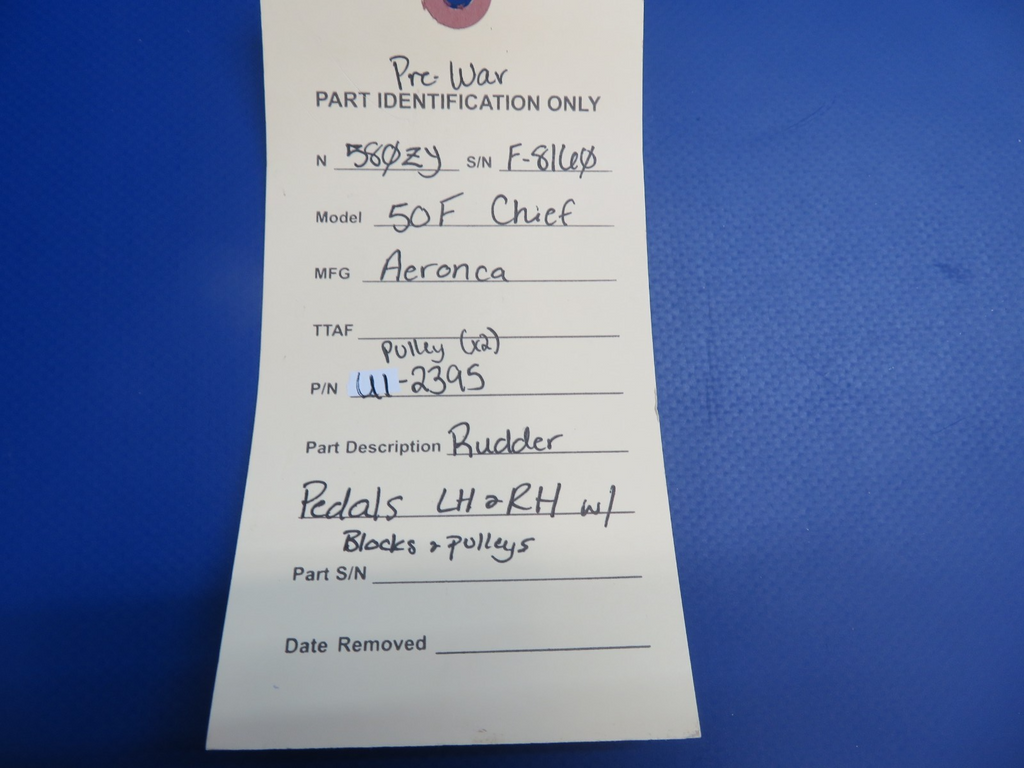 Pre-War
PART IDENTIFICATION ONLY
N 580ZY S/N F-8160
Model 50F Chief
MFG Aeronca
TTAF
Pulley (x2)
P/N U1-2395
Part Description Rudder
Pedals LH & RH w/
Blocks & pulleys
Part S/N
Date Removed